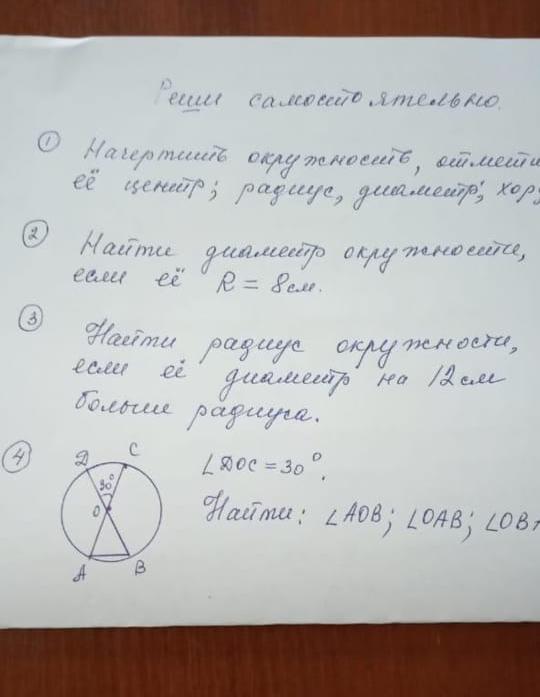 Реши самостоятельно.
① Начертить окружность, отмети
её центр; радиус, диаметр, хорд
② Найти диаметр окружности,
если её R = 8 см.
③ Найти радиус окружности,
если её диаметр на 12 см
больше радиуса.
④ D C ∠DOC = 30°.
30°
O Найти: ∠AOB; ∠OAB; ∠OBA
A B